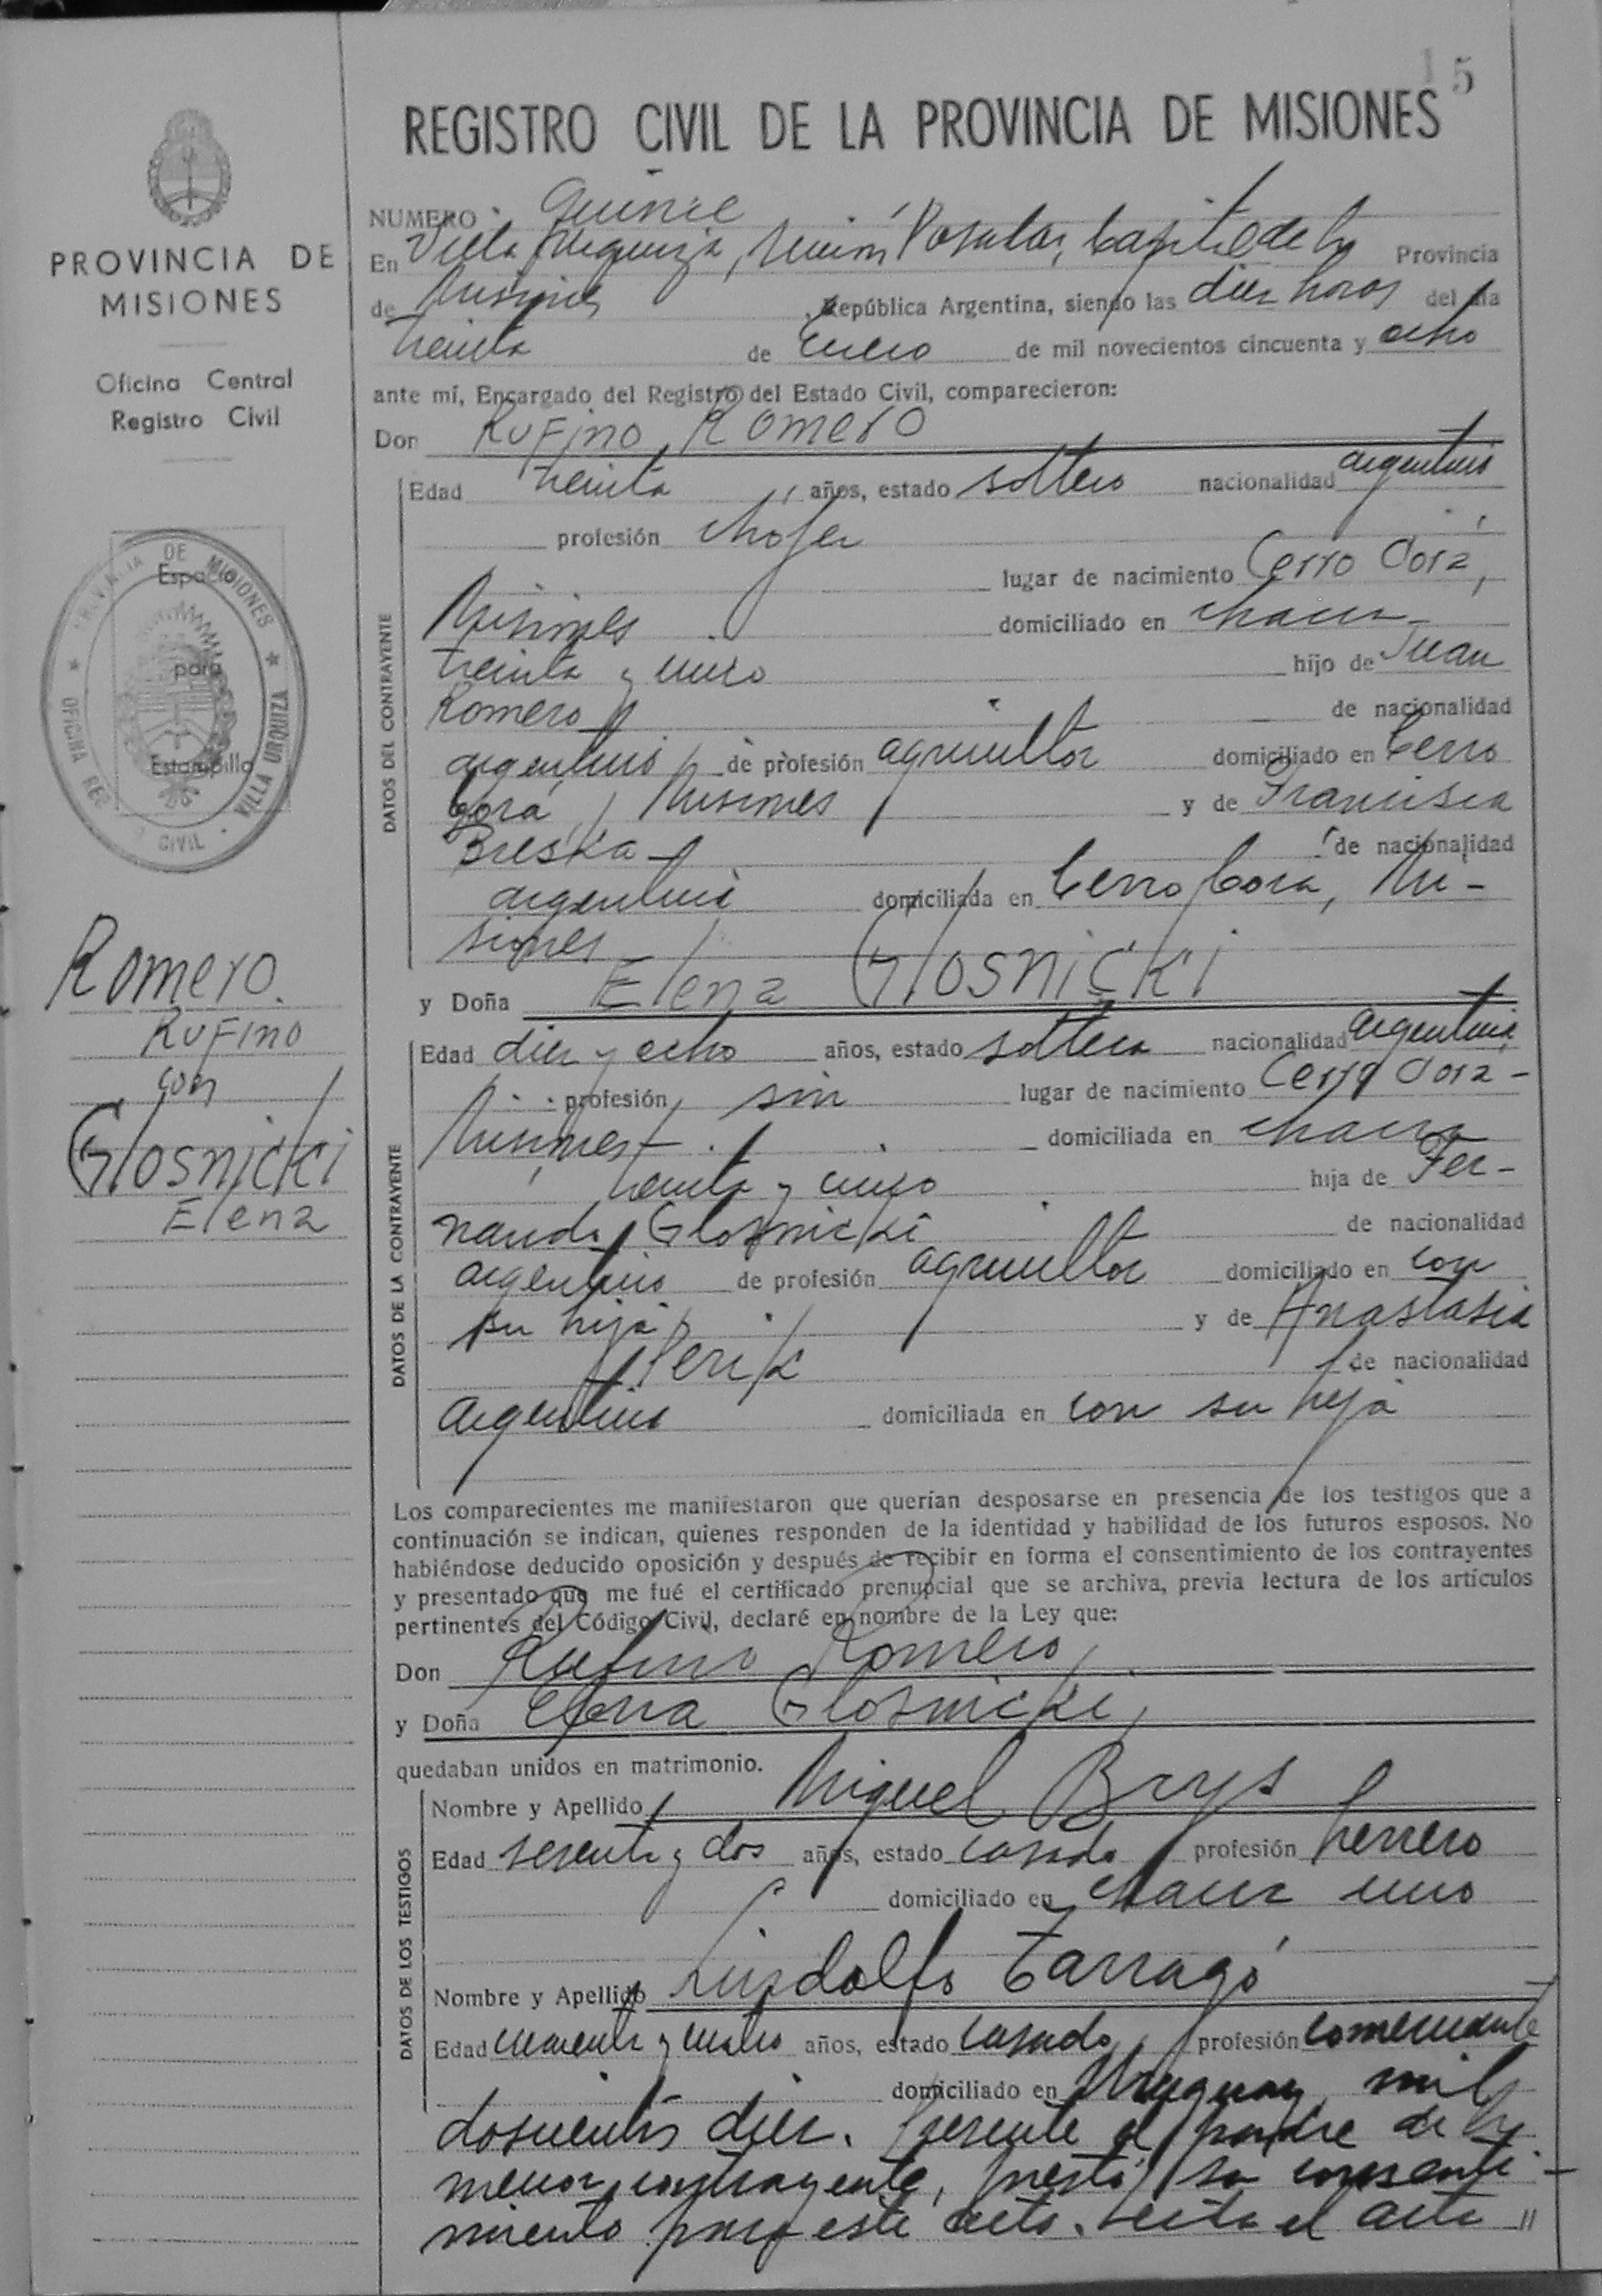 15
REGISTRO CIVIL DE LA PROVINCIA DE MISIONES
PROVINCIA DE
MISIONES
Oficina Central
Registro Civil
PROVINCIA DE MISIONES
Espacio
para
Estampilla
OFICINA REG. CIVIL - VILLA URQUIZA
Romero
Rufino
con
Glosnicki
Elena
NUMERO Quince
En Villa Urquiza, Posadas, Capital de la Provincia
de Misiones, República Argentina, siendo las diez horas del día
treinta de Enero de mil novecientos cincuenta y ocho
ante mí, Encargado del Registro del Estado Civil, comparecieron:
Don Rufino Romero
DATOS DEL CONTRAYENTE
Edad treinta años, estado soltero nacionalidad argentino
profesión chofer
lugar de nacimiento Cerro Corá,
Misiones domiciliado en chacra
treinta y cinco hijo de Juan
Romero de nacionalidad
argentino de profesión agricultor domiciliado en Cerro
Corá, Misiones y de Francisca
Breska de nacionalidad
argentina domiciliada en Cerro Cora, Mi-
siones
y Doña Elena Glosnicki
DATOS DE LA CONTRAYENTE
Edad diez y ocho años, estado soltera nacionalidad argentina
profesión sin lugar de nacimiento Cerro Corá-
Misiones domiciliada en chacra
treinta y cinco hija de Fer-
nando Glosnicki de nacionalidad
argentino de profesión agricultor domiciliado en con
su hija y de Anastasia
de nacionalidad
argentina domiciliada en con su hija
Los comparecientes me manifestaron que querían desposarse en presencia de los testigos que a
continuación se indican, quienes responden de la identidad y habilidad de los futuros esposos. No
habiéndose deducido oposición y después de recibir en forma el consentimiento de los contrayentes
y presentado que me fué el certificado prenupcial que se archiva, previa lectura de los artículos
pertinentes del Código Civil, declaré en nombre de la Ley que:
Don Rufino Romero
y Doña Elena Glosnicki,
quedaban unidos en matrimonio.
DATOS DE LOS TESTIGOS
Nombre y Apellido Miguel Brys
Edad sesenta y dos años, estado casado profesión herrero
domiciliado en chacra uno
Nombre y Apellido Lindolfo Tarragó
Edad cuarenta y cuatro años, estado casado, profesión comerciante
domiciliado en Uruguay mil
doscientos diez. Presente el padre de la
menor contrayente, prestó su consenti-
miento para este acto. Leída el acta "